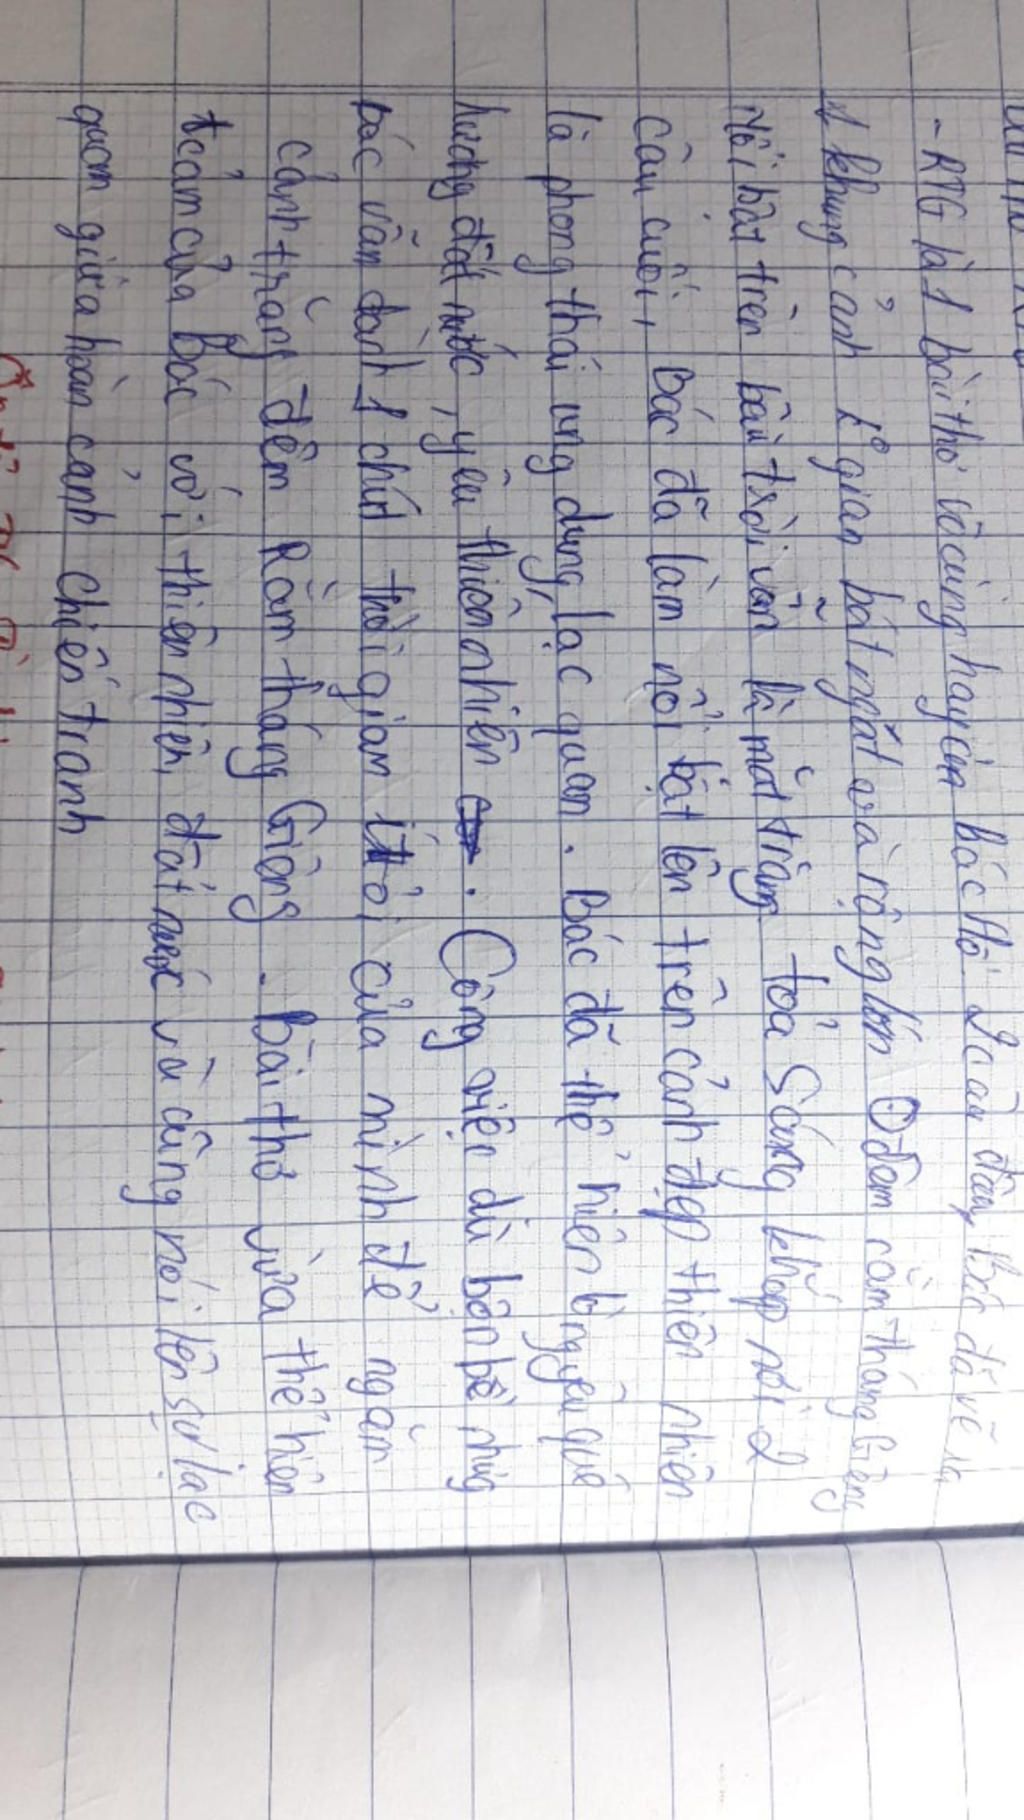 - RTG là 1 bài thơ vô cùng hay của Bác Hồ. 2 câu đầu, Bác đã vẽ ra
1 khung cảnh k° gian bát ngát và rộng lớn ở đêm rằm tháng Giêng
Nổi bật trên bầu trời vẫn là mặt trăng toả sáng khắp nơi. 2
câu cuối, Bác đã làm nổi bật lên trên cảnh đẹp thiên nhiên
là phong thái ung dung, lạc quan. Bác đã thể hiện lòng yêu quê
hương đất nước, yêu thiên nhiên. Công việc dù bộn bề nhưng
Bác vẫn dành 1 chút thời gian ít ỏi của mình để ngắm
cảnh trăng đêm Rằm tháng Giêng. Bài thơ vừa thể hiện
t.cảm của Bác với thiên nhiên, đất nước và cũng nói lên sự lạc
quan giữa hoàn cảnh chiến tranh